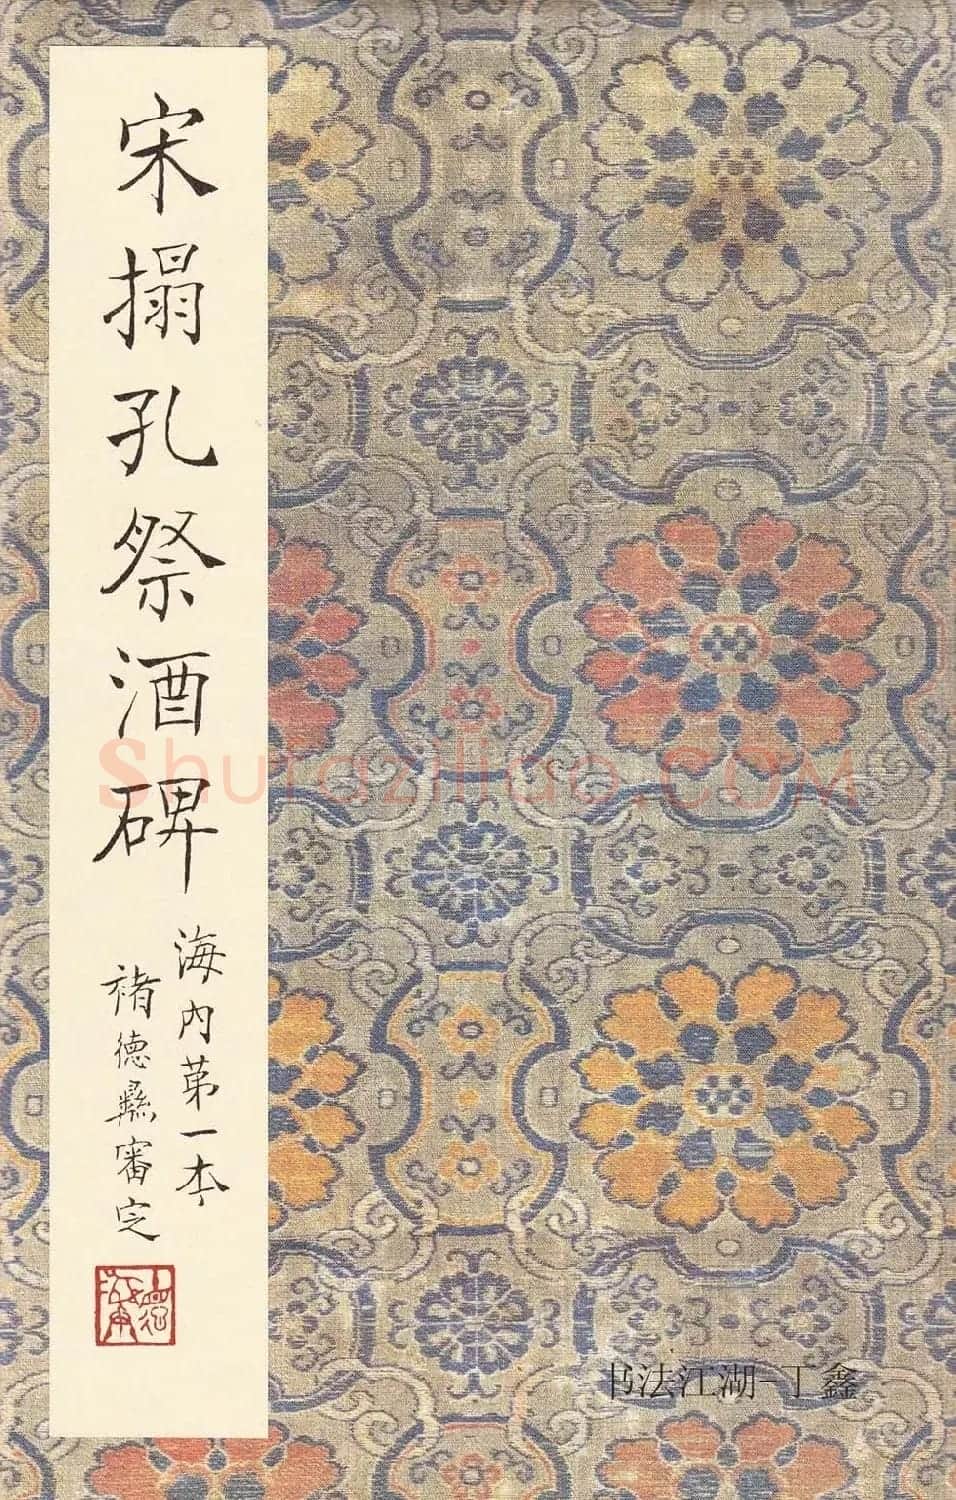 宋搨孔祭酒碑
海内第一本
褚德彝審定
Shufaziliao.COM
书法江湖-丁鑫